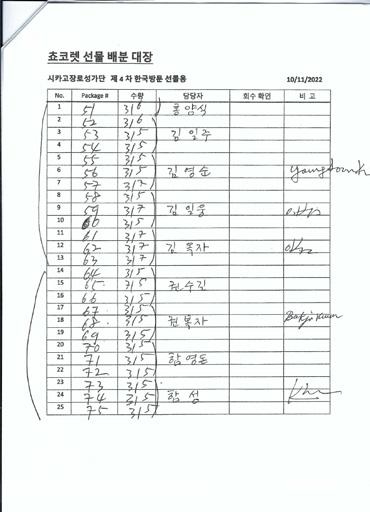 쵸코렛 선물 배분 대장
시카고장로성가단 제 4 차 한국방문 선물용 10/11/2022
No. Package # 수량 담당자 회수 확인 비 고
1 51 3/6 홍양식
2 52 3/6
3 53 3/5 김일주
4 54 3/5
5 55 3/5
6 56 3/5 김영순
7 57 3/7
8 58 3/5
9 59 3/7 김일웅
10 60 3/5
11 61 3/7
12 62 3/7 김목자
13 63 3/7
14 64 3/5
15 65 3/5 권수길
16 66 3/5
17 67 3/5
18 68 3/5 권복자
19 69 3/5
20 70 3/5
21 71 3/5 함영돈
22 72 3/5
23 73 3/5
24 74 3/5 함성
25 75 3/5